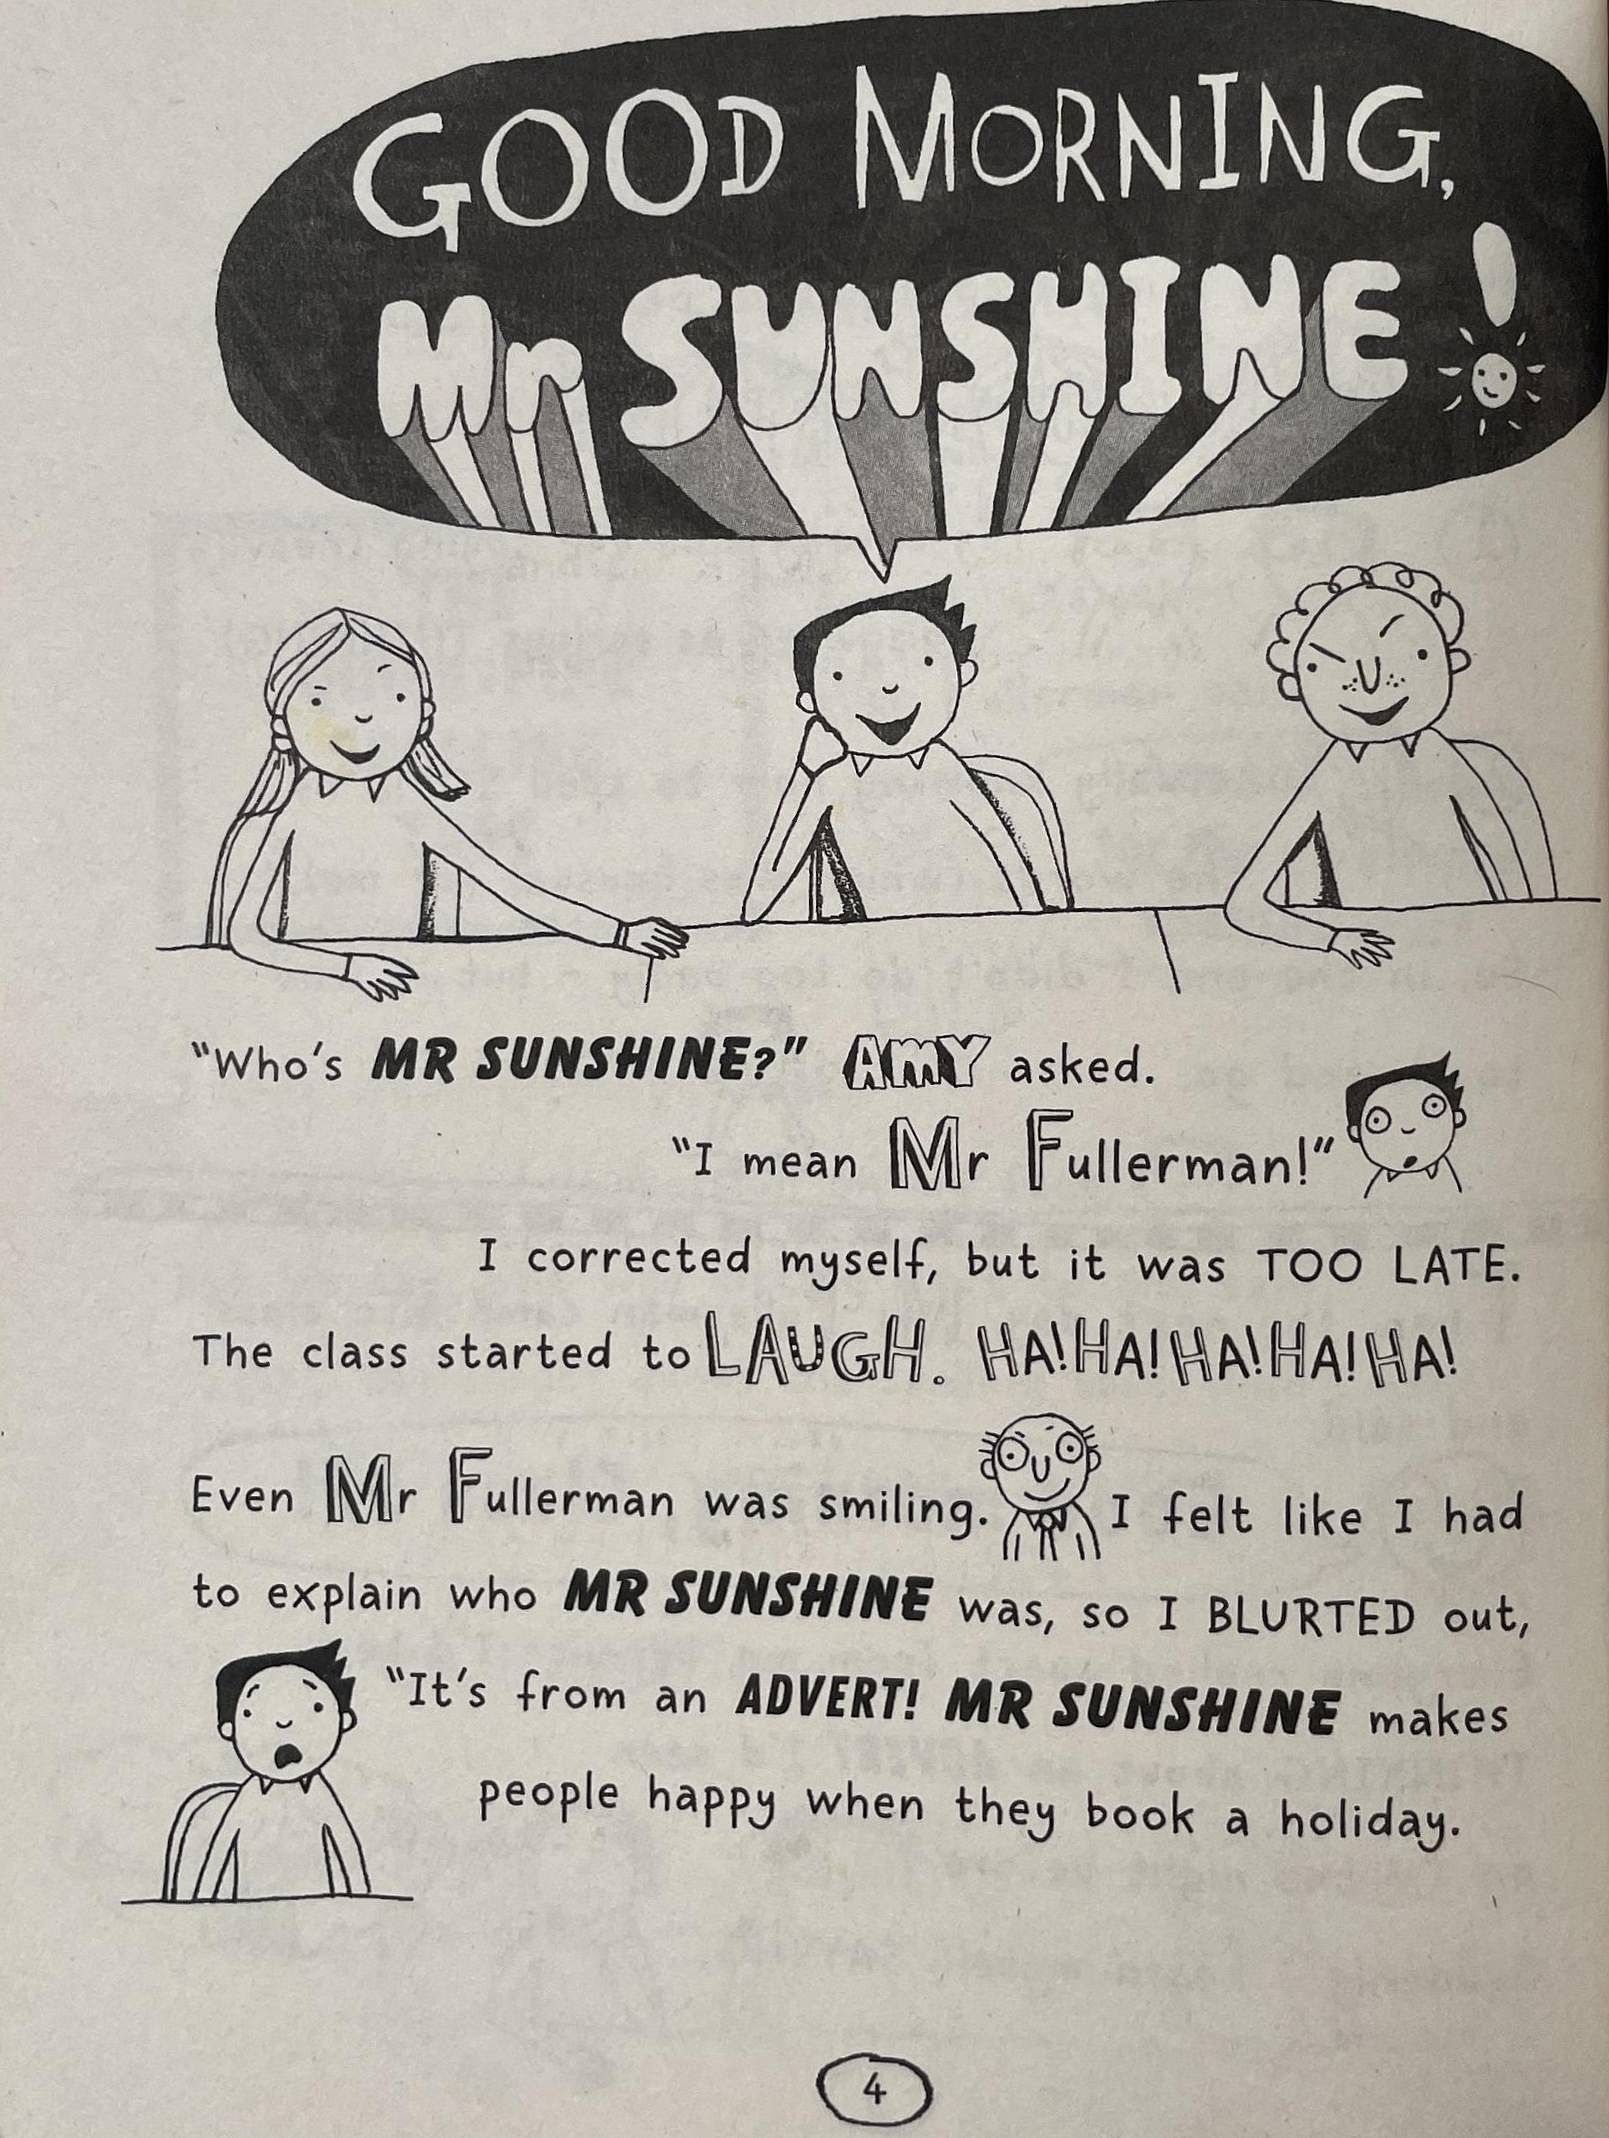 GOOD MORNING,
Mr SUNSHINE!
"Who's MR SUNSHINE?" AMY asked.
"I mean Mr Fullerman!"
I corrected myself, but it was TOO LATE.
The class started to LAUGH. HA!HA!HA!HA!HA!
Even Mr Fullerman was smiling. I felt like I had
to explain who MR SUNSHINE was, so I BLURTED out,
"It's from an ADVERT! MR SUNSHINE makes
people happy when they book a holiday.
4